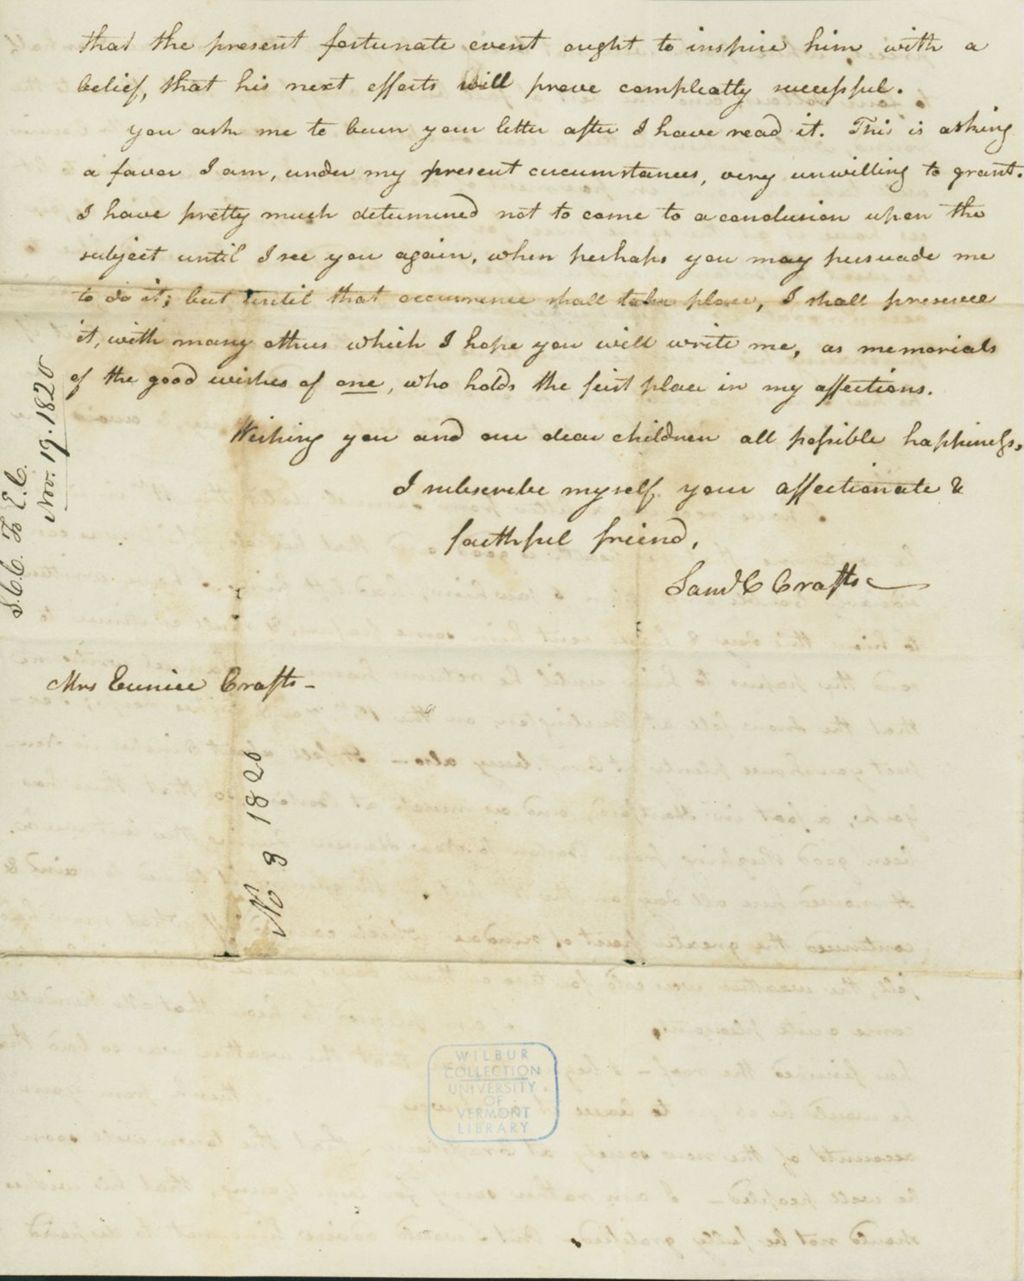 that the present fortunate event ought to inspire him with a
belief, that his next efforts will prove compleatly successful.
you ask me to burn your letter after I have read it. This is asking
a favor I am, under my present circumstances, very unwilling to grant.
I have pretty much determined not to come to a conclusion upon the
subject until I see you again, when perhaps you may persuade me
to do it; but until that occurrence shall take place, I shall preserve
it, with many others which I hope you will write me, as memorials
of the good wishes of one, who holds the first place in my affections.
Wishing you and our dear children all possible happiness,
I subscribe myself your affectionate &
faithful friend,
Saml C Crafts
Mrs Eunice Crafts-
S.C.C. To E.C.
Nov. 19. 1820
No 3 1820
WILBUR
COLLECTION
UNIVERSITY
OF
VERMONT
LIBRARY